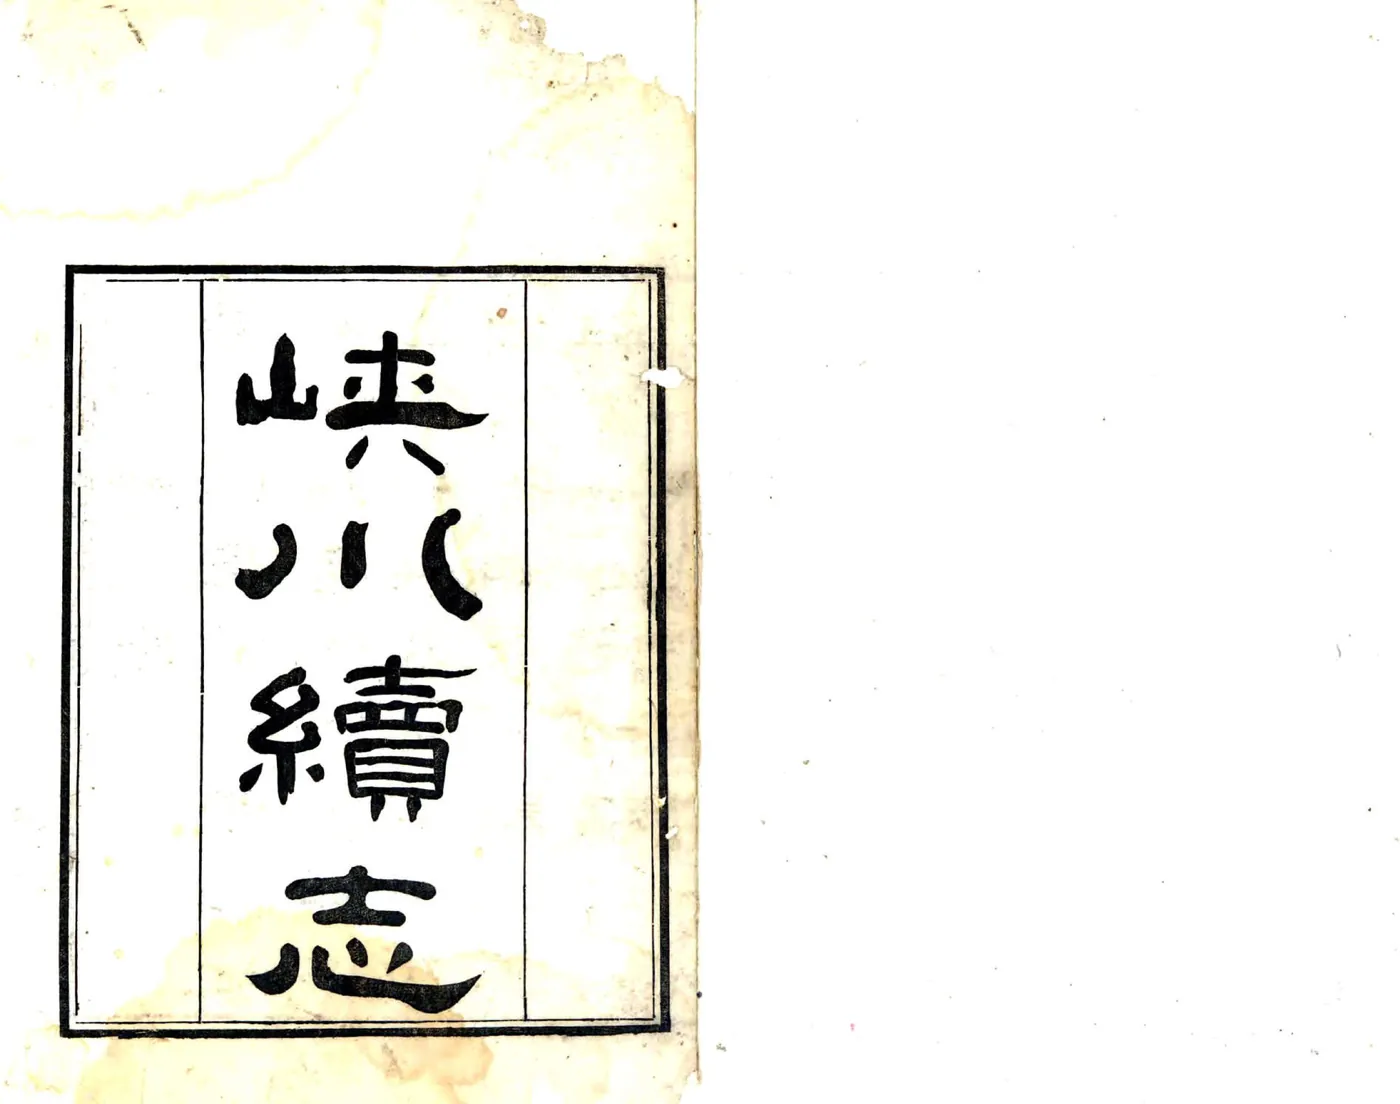 峡川續志